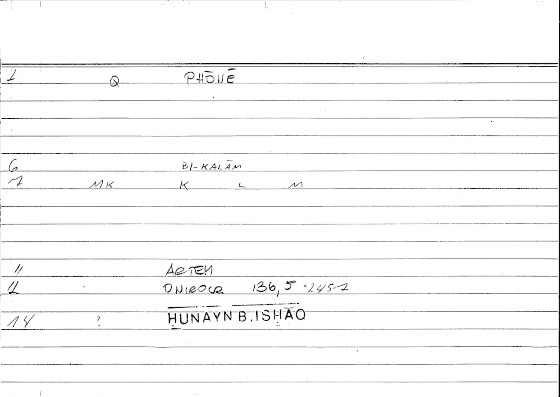 1 Q PHŌNĒ
6 BI-KALĀM
7 MK K L M
11 ARTEM
12 ONIROCR 136,5
14 ? ḤUNAYN B. ISḤĀQ